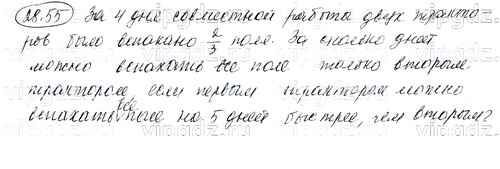 28.55 За 4 дня совместной работы двух тракто-
ров было вспахано 2/3 поля. За сколько дней
можно вспахать все поле только вторым
трактором, если первым трактором можно
вспахать все поле на 5 дней быстрее, чем вторым?